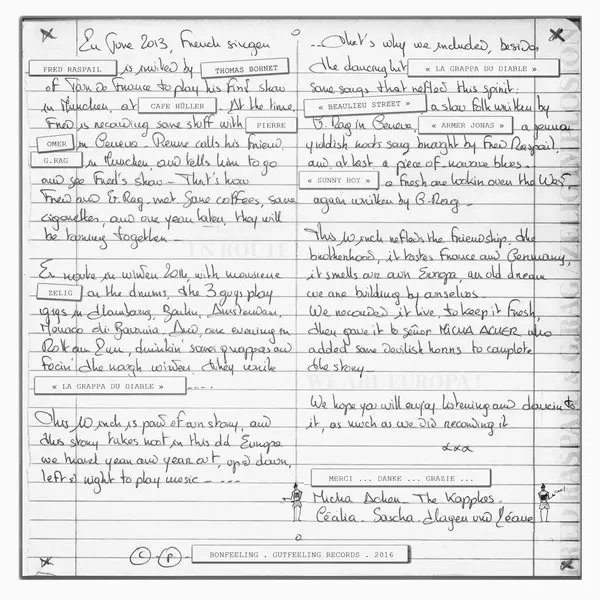 En June 2013, French singer
FRED RASPAIL is invited by THOMAS BOHNET
of Tour de France to play his first show
in München, at CAFE HÜLLER. At the time,
Fred is recording some stuff with PIERRE
OMER in Geneva. Pierre calls his friend,
G.RAG in München and tells him to go
and see Fred's show. That's how
Fred and G.Rag met. Some coffees, some
cigarettes, and one year later, they will
be touring together.
En route in winter 2014, with monsieur
ZELIG on the drums, the 3 guys play
gigs in Hamburg, Berlin, Amsterdam,
Monaco di Bavaria. And, one evening in
Rott am Inn, drinkin' some grappas and
facin' the rough winter, they write
« LA GRAPPA DU DIABLE » ....
This 10 inch is part of our story, and
this story takes root in this old Europe
we travel year and year out, up & down,
left & right to play music -----
...That's why we included, besides
the dancing hit « LA GRAPPA DU DIABLE »
some songs that reflect this spirit:
« BEAULIEU STREET » a slow folk written by
G.Rag in Geneva, « ARMER JONAS » a german
yiddish roots song brought by Fred Raspail,
and at last a piece of blues.
« SUNNY BOY » a fresh one lookin over the West,
again written by G-Rag.
This 10 inch reflects the friendship, the
brotherhood, it tastes France and Germany,
it smells our own Europa, an old dream
we are building by ourselves.
We recorded it live, to keep it fresh,
then gave it to señor MICHA ACHER who
added some devilish horns to complete
the story
We hope you will enjoy listening and dancin to
it, as much as we did recording it
xxx
MERCI ... DANKE ... GRAZIE ...
Micha Acher. The Kapplos.
Cécilia. Sascha. Hagen und Léane
C P BONFEELING . GUTFEELING RECORDS . 2016
EN ROUTE
WE ARE EUROPA!